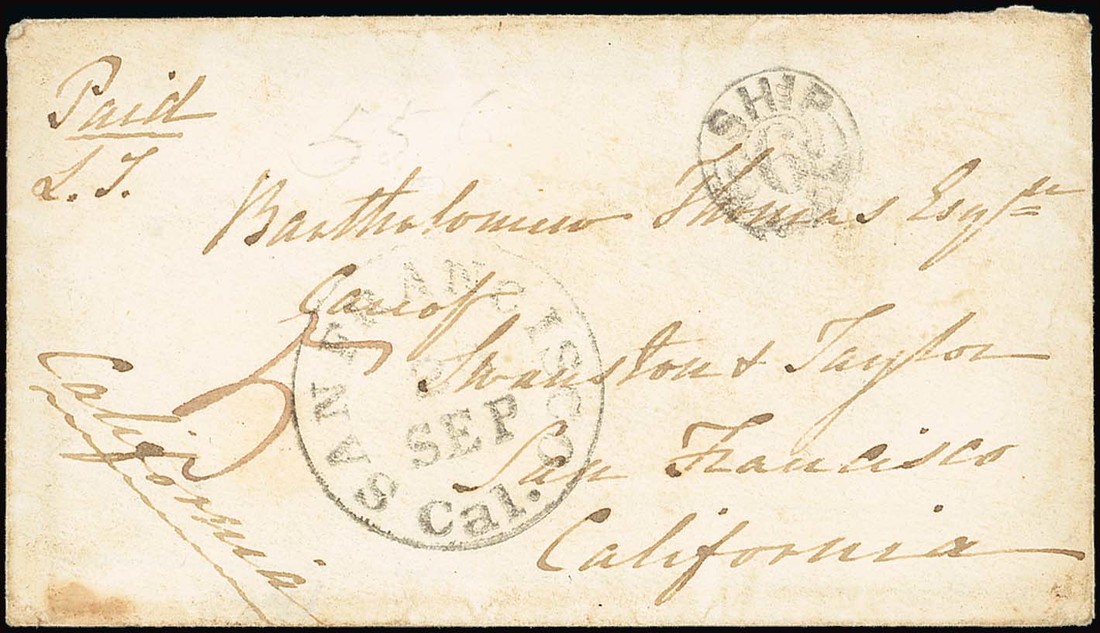 Paid
L. T.
55
SHIP
6
Bartholomew Thomas Esqre
Care of
Swanston & Taylor
San Francisco
California
California
5
SAN FRANCISCO
SEP
Cal.